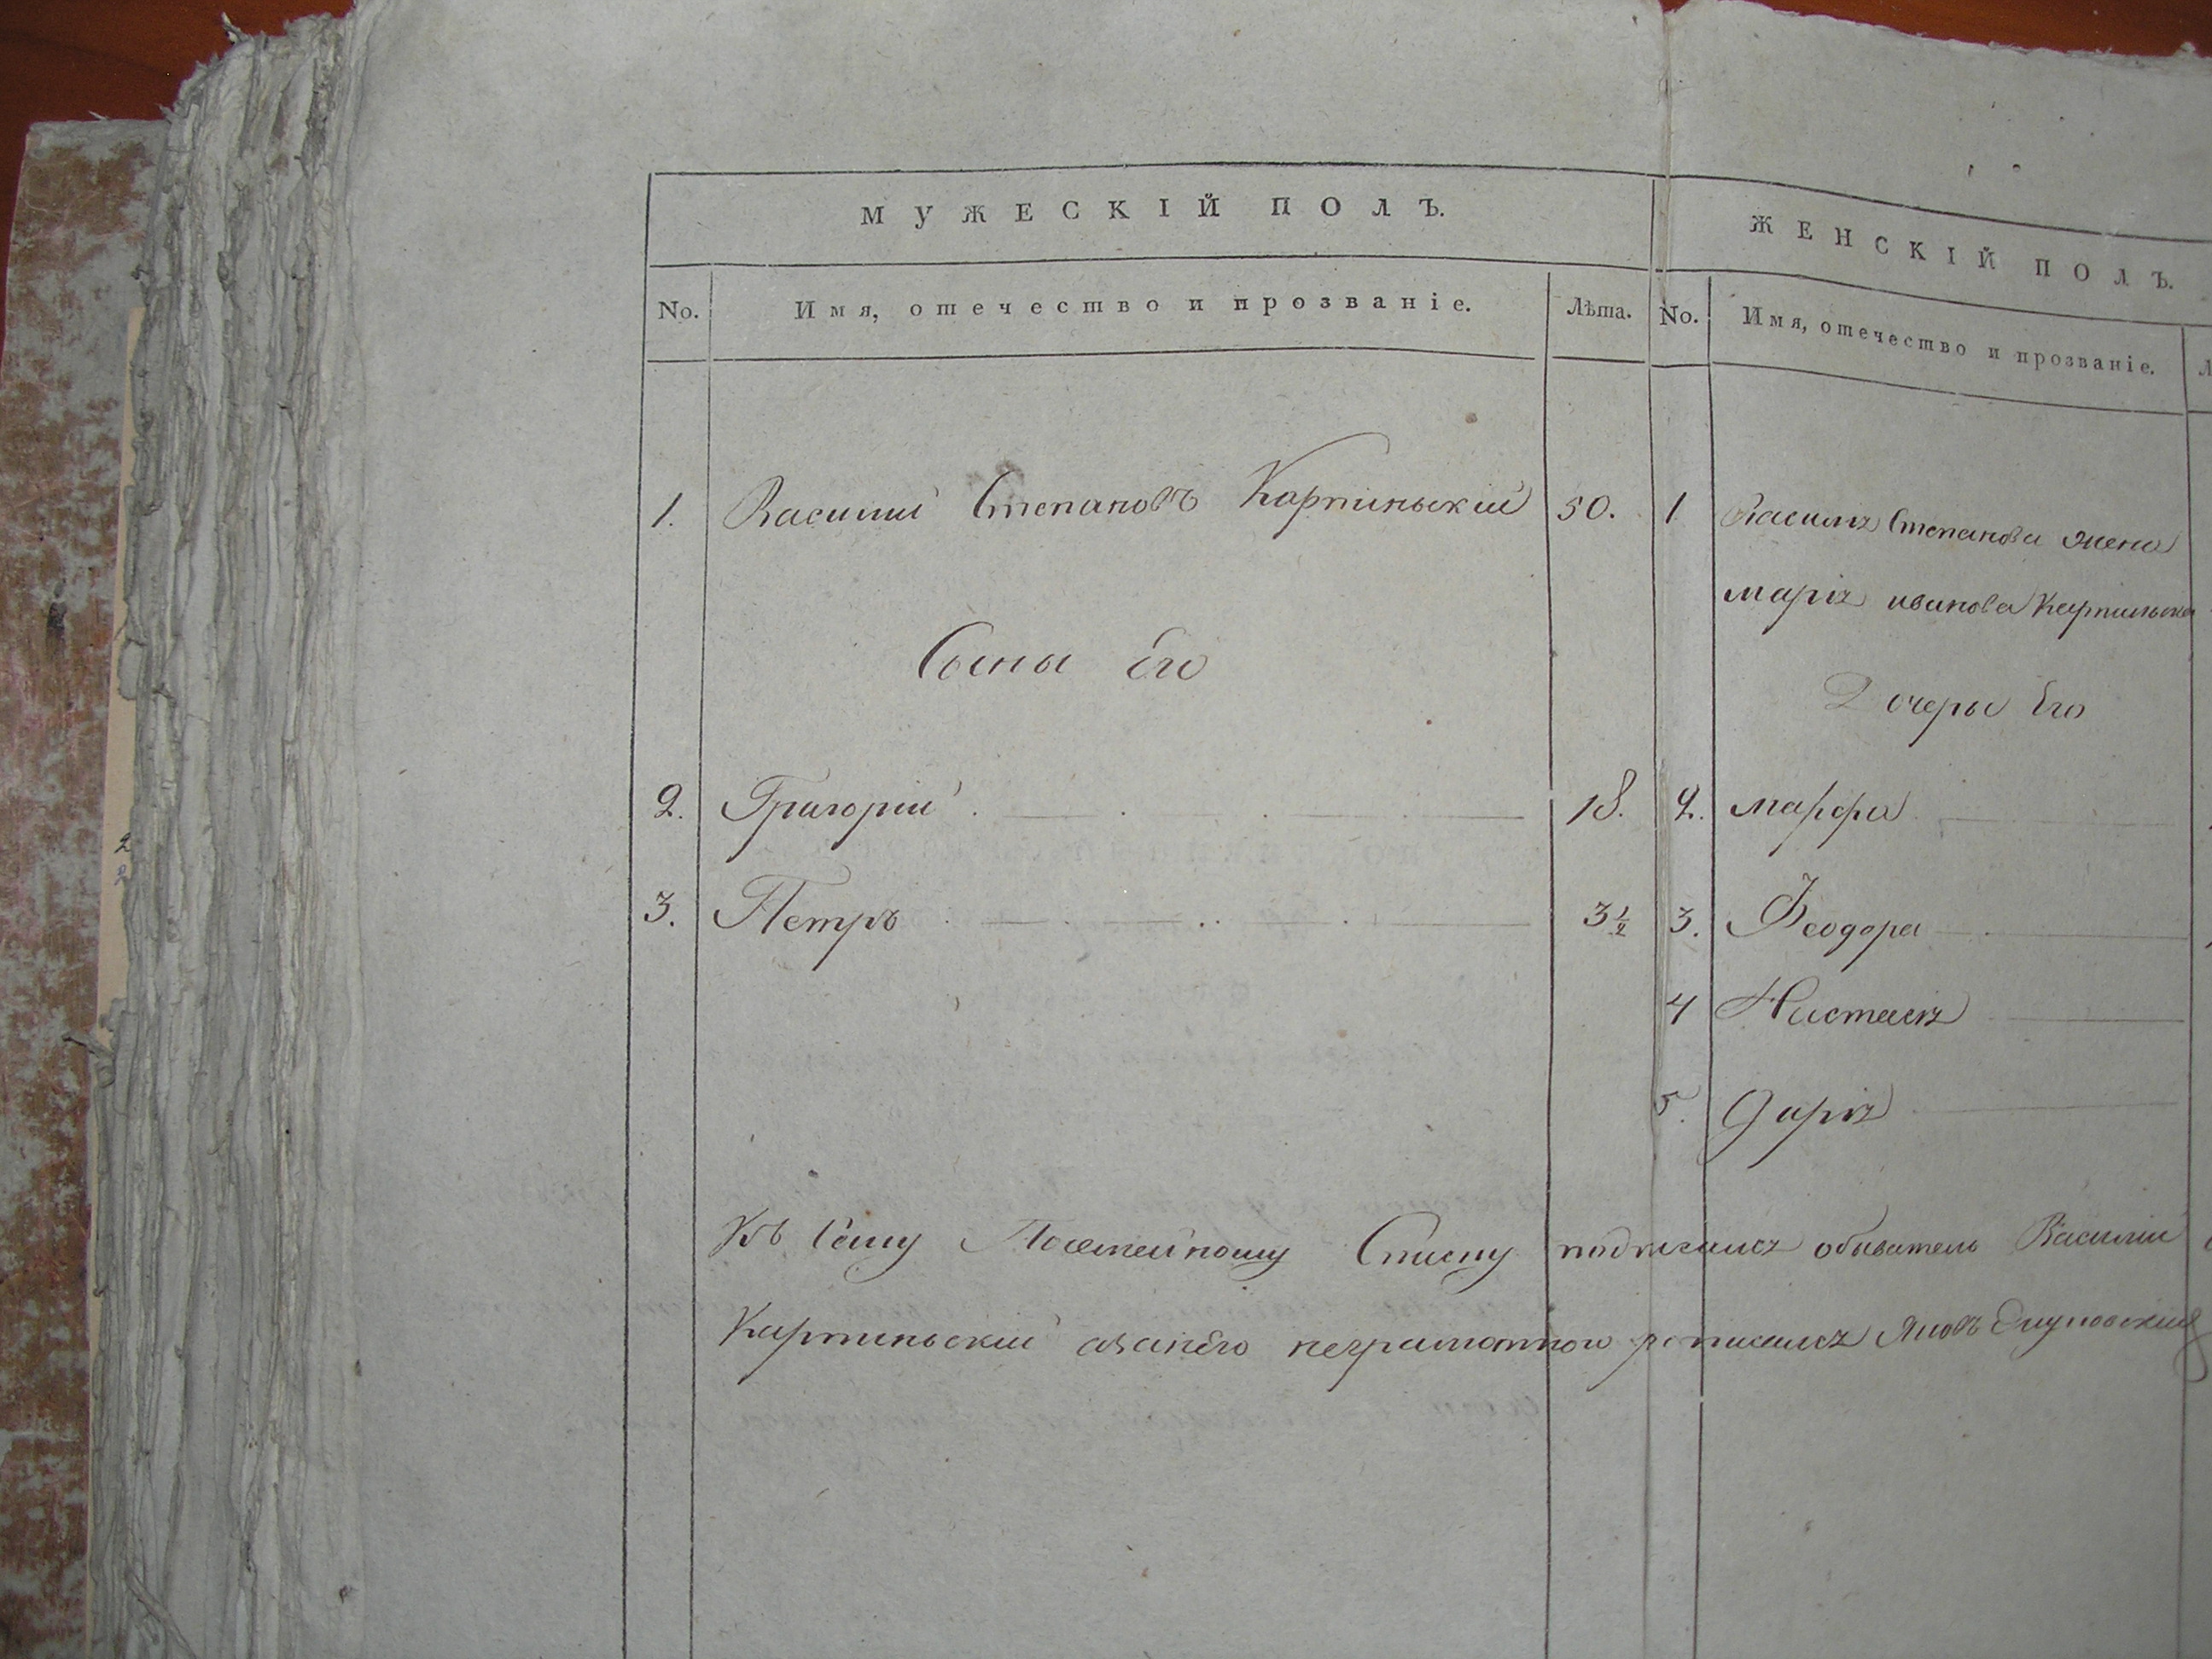 МУЖЕСКІЙ ПОЛЪ.
No. Имя, отечество и прозваніе. Лѣта.
1. Василий Степановъ Карпиньский 50.
Сыны Его
2. Григорій 18.
3. Петръ 3 1/2
ЖЕНСКІЙ ПОЛЪ.
No. Имя, отечество и прозваніе.
1 Василя Степанова жена
марія иванова
Дочеры Его
2. марфа
3. Феодора
4 Настася
5. Дарія
Къ Сему Посемейному Списку подписался обыватель Василий
Карпиньский азанего неграмотного росписался Яковъ